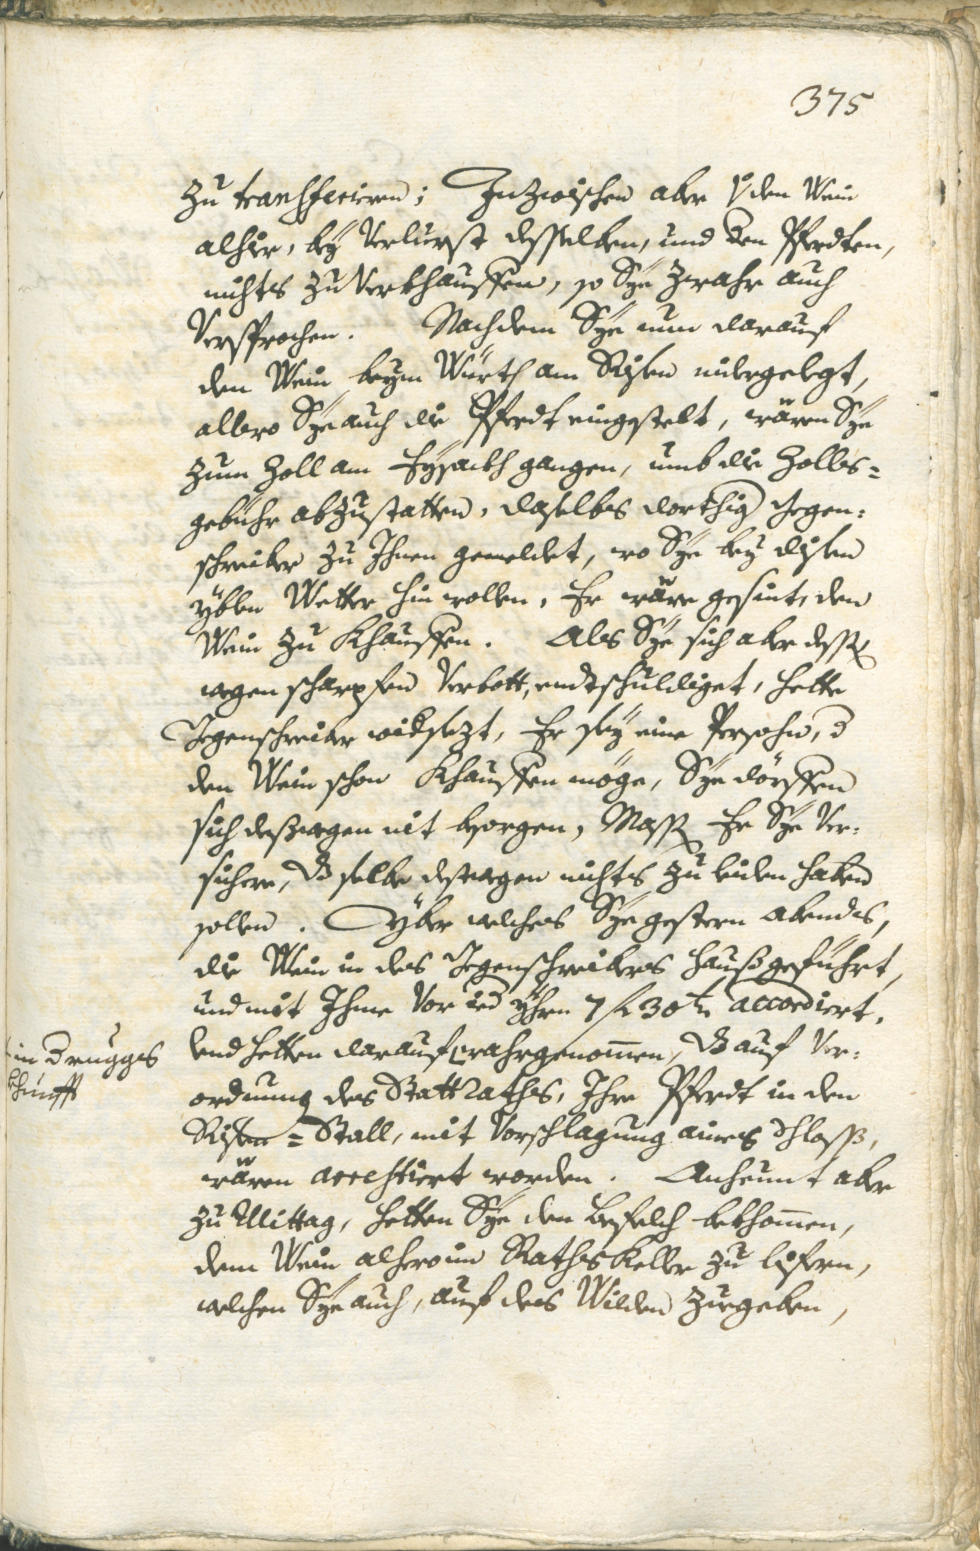 375
zu transferiren; Inzwischen aber den Wein
alhir, bey Verlurst desselben, und den Pferdten,
nichts zu Verkhauffen, so Sye zwahr auch
Versprochen. Nachdem Sye nun darauf
den Wein beym Würth am Risen nidergelegt,
allwo Sye auch die Pferdt eingestelt, wären Sye
zum Zoll am Eysackh gangen, umb die Zolls=
gebühr abzustatten, daselbs dorthig Gegen=
schreiber zu Ihnen gemeldet, wo Sye bey disem
yblen Wetter hin wollen, Er wäre gesint, den
Wein zu Khauffen. Als Sye sich aber dess
wegen scharpfen Verbott, endtschuldiget, hette
Gegenschreiber widersezt, Er sey eine Persohn, d
den Wein schon Khauffen möge, Sye dörffen
sich deßwegen nit besorgen, Mass Er Sye Ver=
sichere, dß selbe destwegen nichts zu leiden haben
sollen. Yber welches Sye gestern abendts,
die Wein in des Gegenschreibers Hauß geführt,
und mit Ihme Vor ied Yhrn 7 f 30 accordiert.
Und hetten darauf wahrgenommen, dß auf Ver=
in Bruggs
Khunfft
ordnung des StattRaths, Ihre Pferdt in den
Risen=Stall, mit Vorschlagung aines Schloß,
wären arrestiert worden. Anheunt aber
zu Mittag, hetten Sye den Befelch bekhommen,
dem Wein alhero im RathsKeller zu lifern,
welchen Sye auch, auf des Wilden zuegeben,